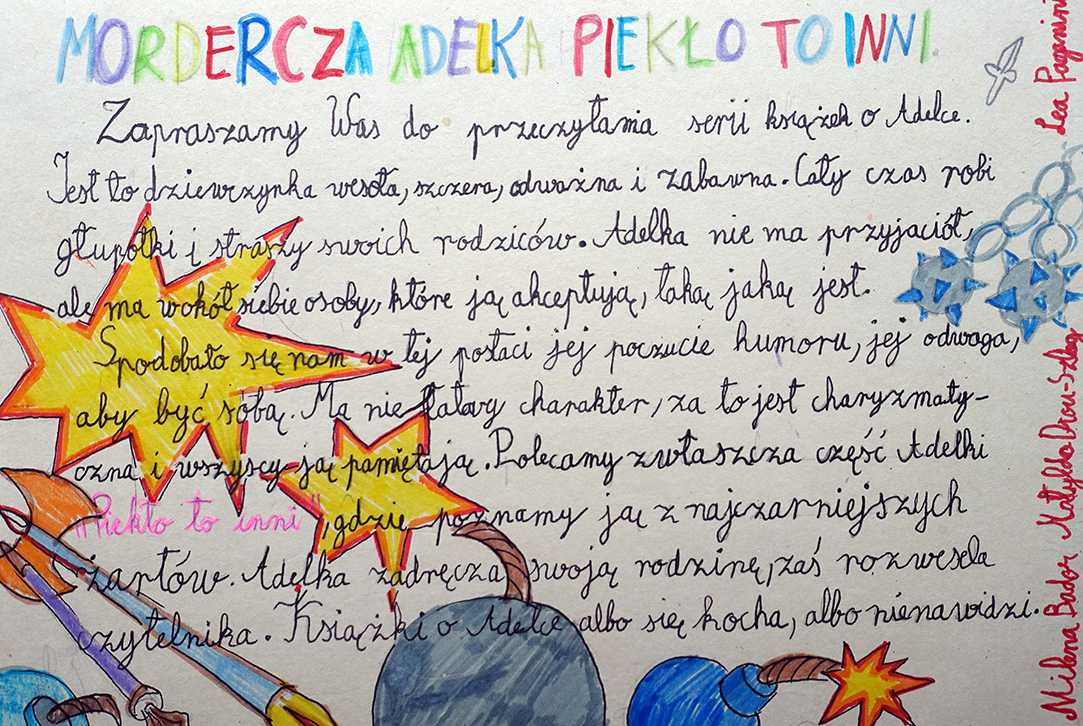 MORDERCZA ADELKA PIEKŁO TO INNI.
Zapraszamy Was do przeczytania serii książek o Adelce.
Jest to dziewczynka wesoła, szczera, odważna i zabawna. Cały czas robi
głupotki i straszy swoich rodziców. Adelka nie ma przyjaciół,
ale ma wokół siebie osoby, które ją akceptują, taką jaką jest.
Spodobało się nam w tej postaci jej poczucie humoru, jej odwaga,
aby być sobą. Ma nie łatawy charakter, za to jest charyzmaty-
czna i wszyscy ją pamiętają. Polecamy zwłaszcza część Adelki
"Piekło to inni", gdzie poznamy ją z najczarniejszych
żartów. Adelka zadręcza swoją rodzinę, zaś rozwesela
czytelnika. Książki o Adelce albo się kocha, albo nienawidzi.
Milena Bador Matylda Drou-Szlag Lea Paganini